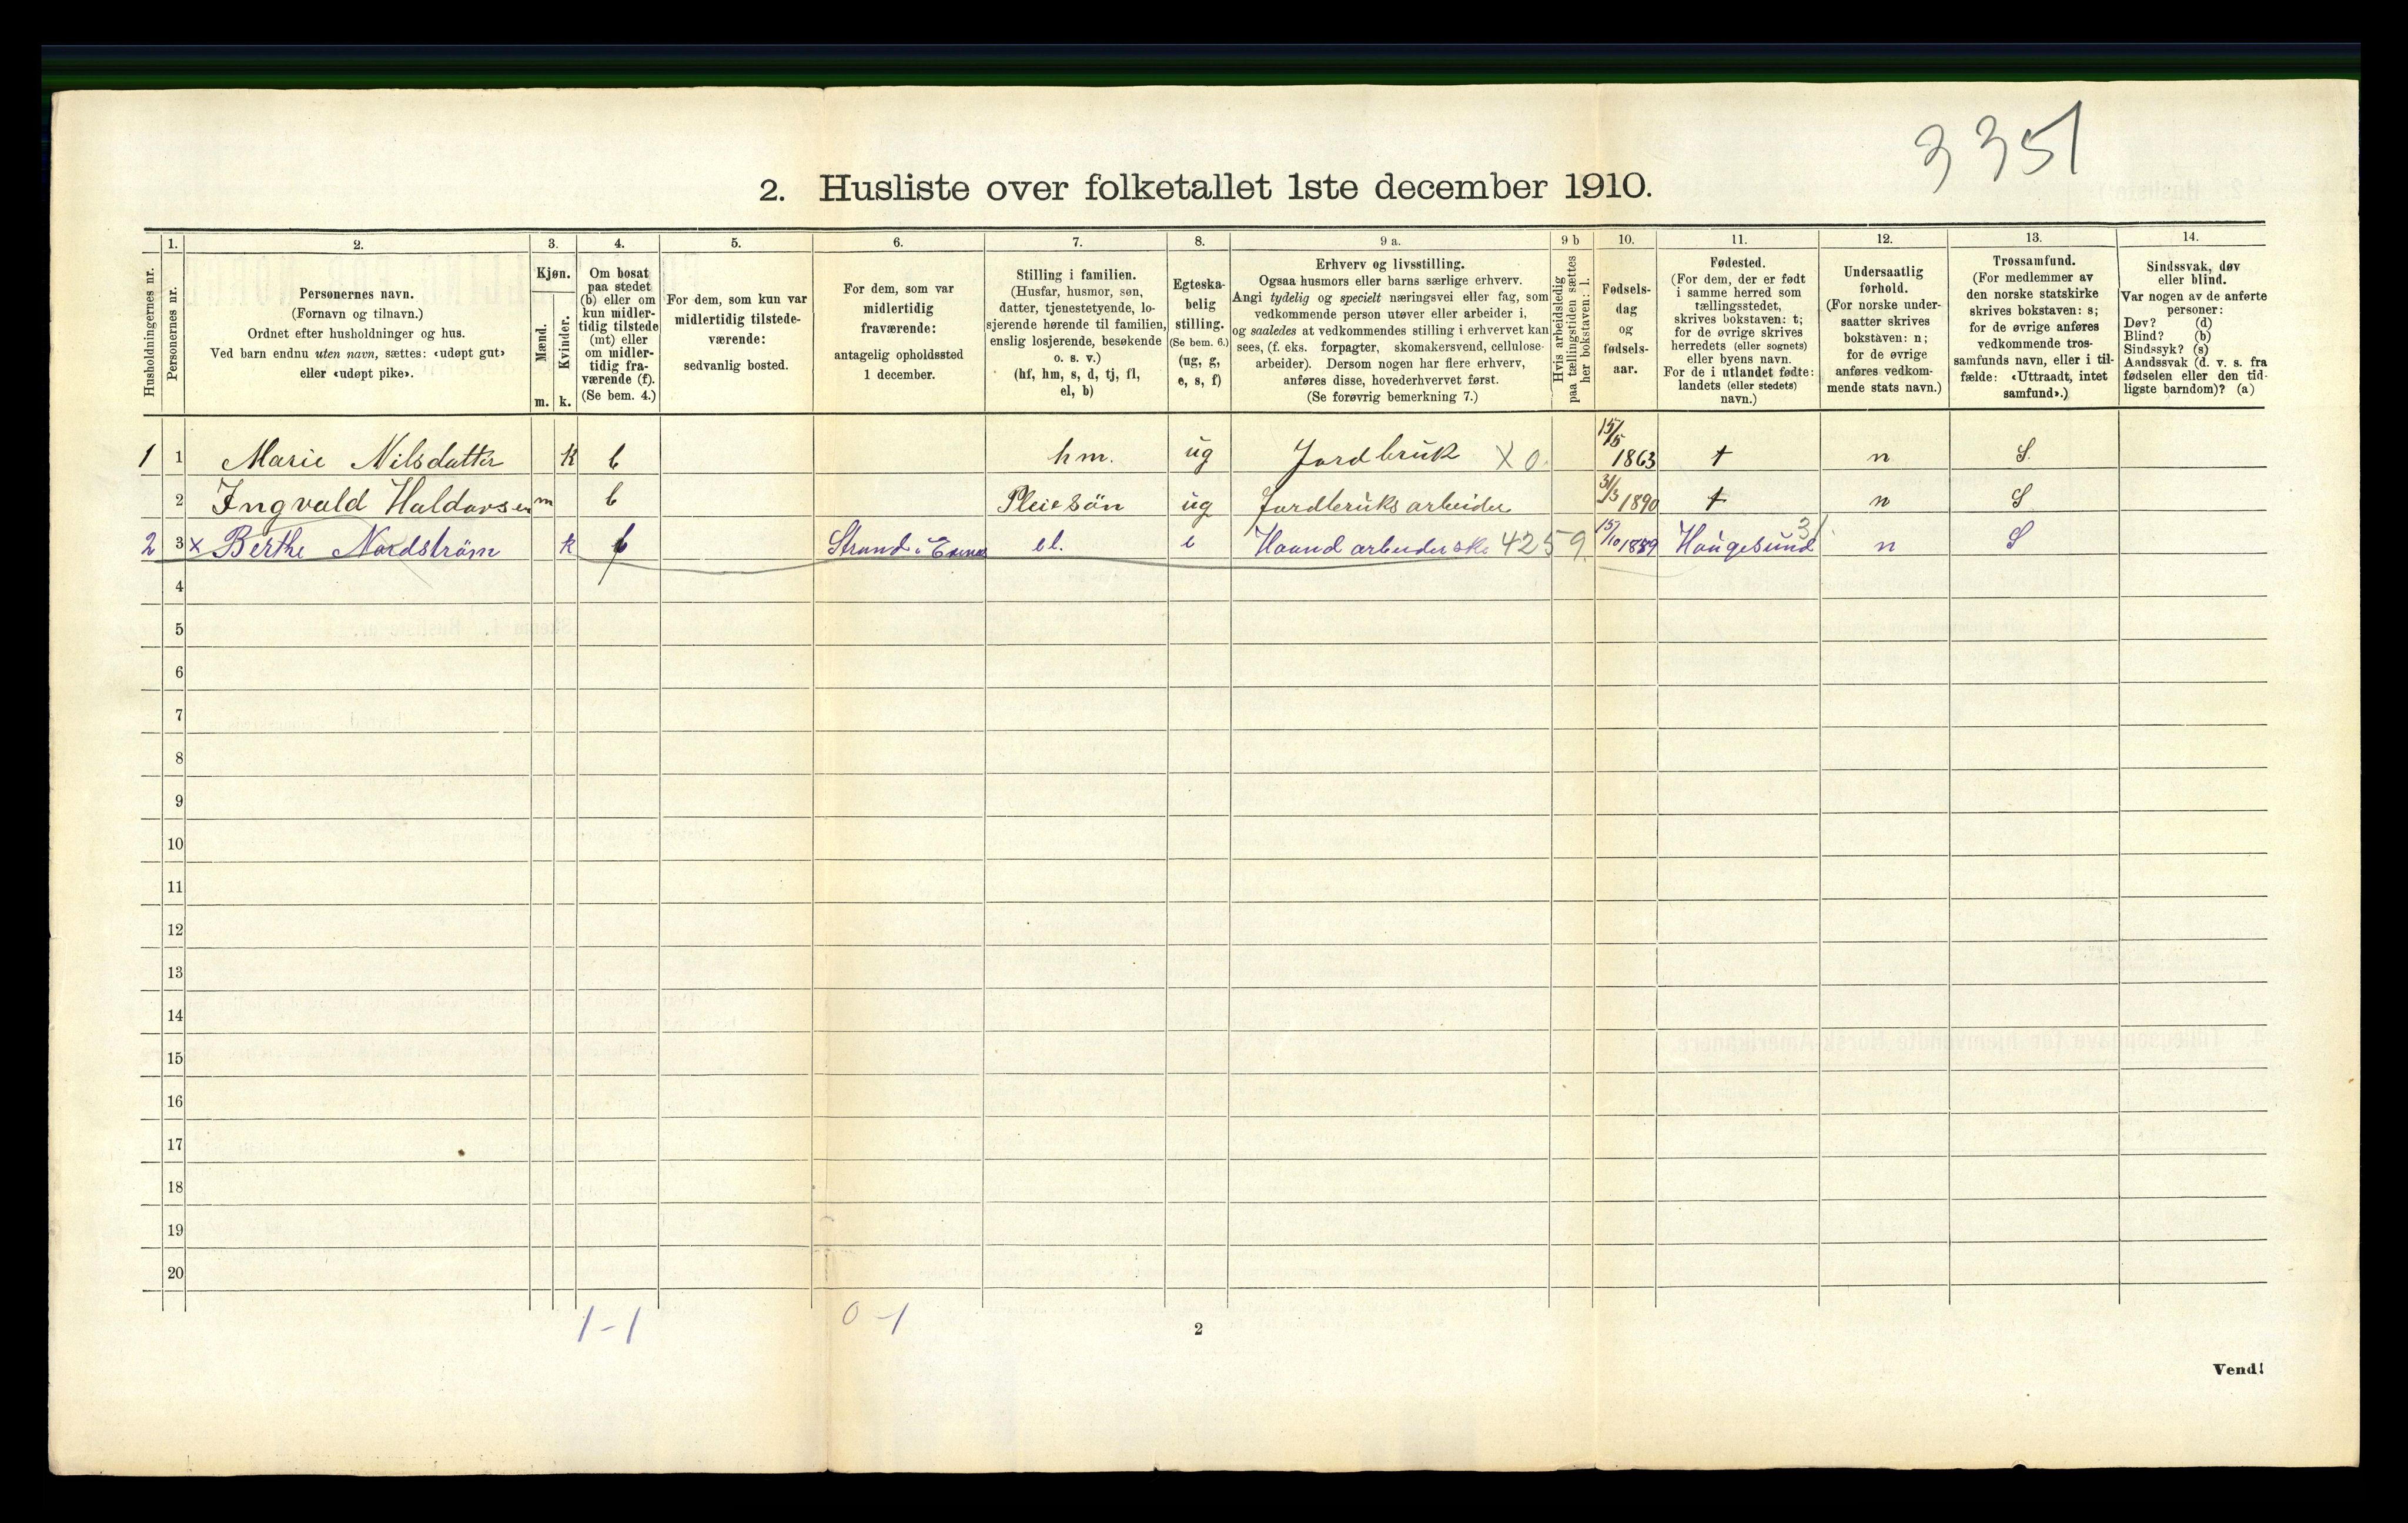 3351
2. Husliste over folketallet 1ste december 1910.
Husholdningernes nr.
1.
Personernes nr.
2.
Personernes navn.
(Fornavn og tilnavn.)
Ordnet efter husholdninger og hus.
Ved barn endnu uten navn, sættes: «udøpt gut»
eller «udøpt pike».
3.
Kjøn.
Mænd.
Kvinder.
m. k.
4.
Om bosat
paa stedet
(b) eller om
kun midler-
tidig tilstede
(mt) eller
om midler-
tidig fra-
værende (f).
(Se bem. 4.)
5.
For dem, som kun var
midlertidig tilstede-
værende:
sedvanlig bosted.
6.
For dem, som var
midlertidig
fraværende:
antagelig opholdssted
1 december.
7.
Stilling i familien.
(Husfar, husmor, søn,
datter, tjenestetyende, lo-
sjerende hørende til familien,
enslig losjerende, besøkende
o. s. v.)
(hf, hm, s, d, tj, fl,
el, b)
8.
Egteska-
belig
stilling.
(Se bem. 6.)
(ug, g,
e, s, f)
9 a.
Erhverv og livsstilling.
Ogsaa husmors eller barns særlige erhverv.
Angi tydelig og specielt næringsvei eller fag, som
vedkommende person utøver eller arbeider i,
og saaledes at vedkommendes stilling i erhvervet kan
sees, (f. eks. forpagter, skomakersvend, cellulose-
arbeider). Dersom nogen har flere erhverv,
anføres disse, hovederhvervet først.
(Se forøvrig bemerkning 7.)
9 b
Hvis arbeidsledig
paa tællingstiden sættes
her bokstaven: l.
10.
Fødsels-
dag
og
fødsels-
aar.
11.
Fødested.
(For dem, der er født
i samme herred som
tællingsstedet,
skrives bokstaven: t;
for de øvrige skrives
herredets (eller sognets)
eller byens navn.
For de i utlandet fødte:
landets (eller stedets)
navn.)
12.
Undersaatlig
forhold.
(For norske under-
saatter skrives
bokstaven: n;
for de øvrige
anføres vedkom-
mende stats navn.)
13.
Trossamfund.
(For medlemmer av
den norske statskirke
skrives bokstaven: s;
for de øvrige anføres
vedkommende tros-
samfunds navn, eller i til-
fælde: «Uttraadt, intet
samfund».)
14.
Sindssvak, døv
eller blind.
Var nogen av de anførte
personer:
Døv? (d)
Blind? (b)
Sindssyk? (s)
Aandssvak (d. v. s. fra
fødselen eller den tid-
ligste barndom)? (a)
1 1 Marie Nilsdatter k b hm. ug Jordbruk X 0. 15/5 1863 t n S.
2 Ingvald Haldorsen m b Pleiesön ug Jordbruksarbeider 31/3 1890 t n S
2 3 x Berthe Nordström k Strand i el. e Haandarbeiderske 4259 15/10 Haugesund 31 n S
4
5
6
7
8
9
10
11
12
13
14
15
16
17
18
19
20
1-1 0-1
2
Vend!